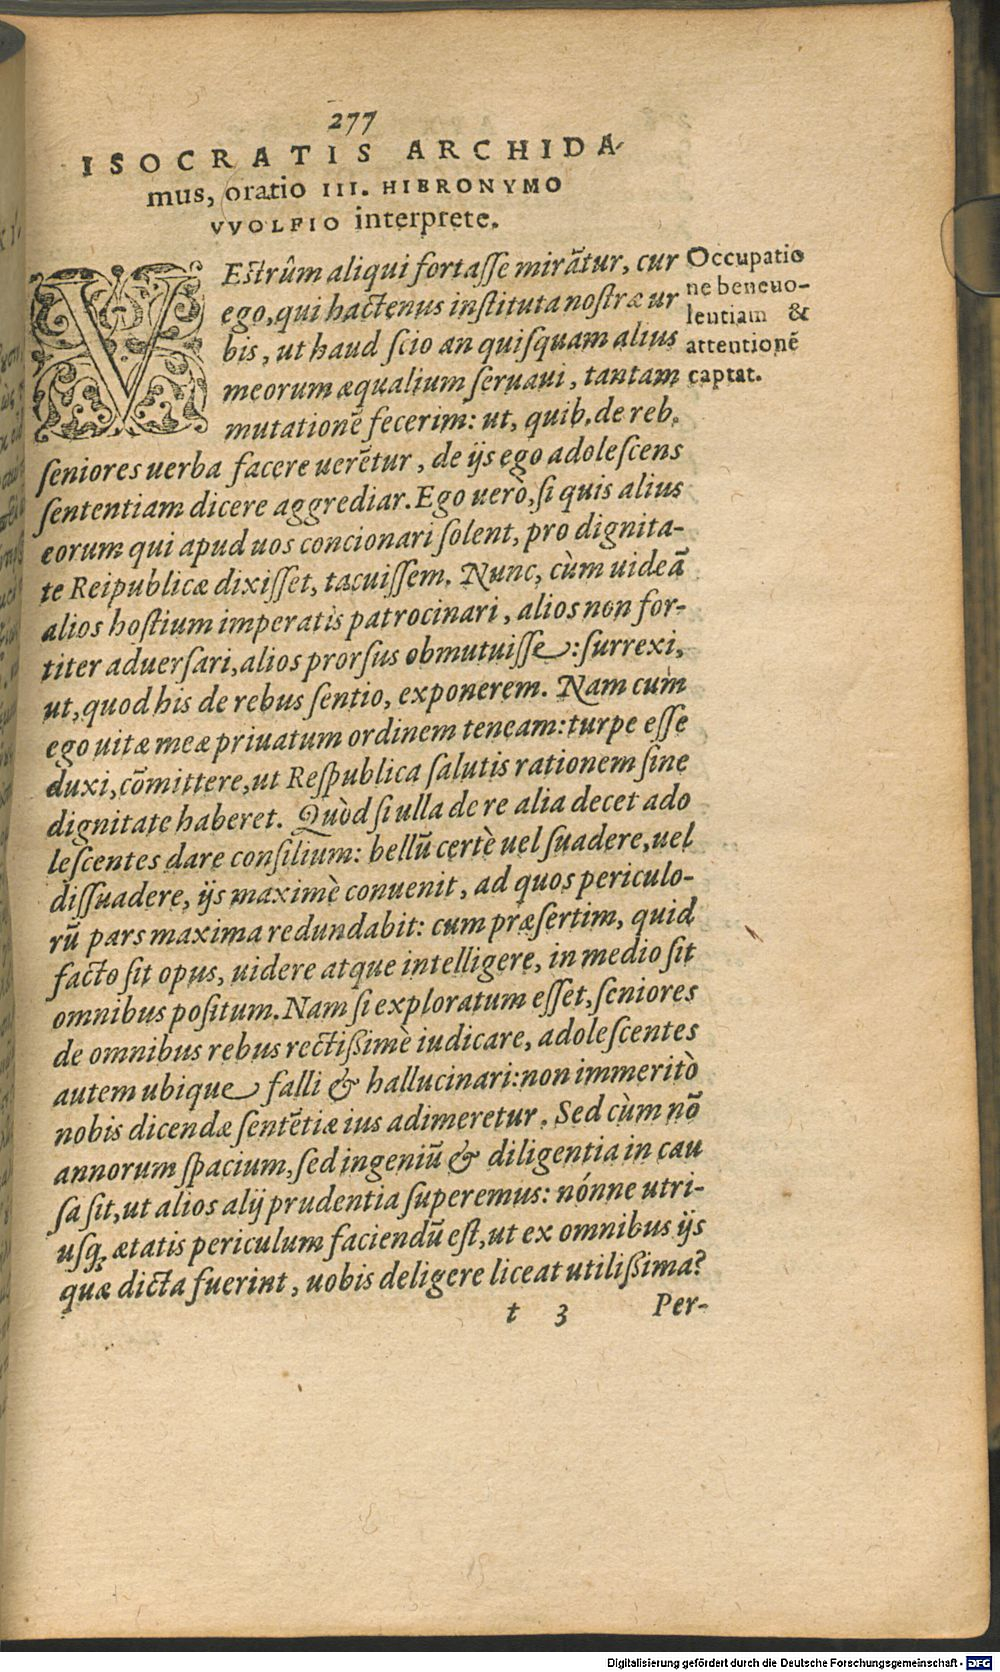 277
ISOCRATIS ARCHIDA-
mus, oratio III. HIERONYMO
VVOLFIO interprete.
VEstrûm aliqui fortasse mirãtur, cur
ego, qui hactenus instituta nostræ ur
bis, ut haud scio an quisquam alius
meorum æqualium seruaui, tantam
mutationẽ fecerim: ut, quib. de reb.
seniores uerba facere uerẽtur, de ijs ego adolescens
sententiam dicere aggrediar. Ego uerò, si quis alius
eorum qui apud uos concionari solent, pro dignita-
te Reipublicæ dixisset, tacuissem. Nunc, cùm uideã
alios hostium imperatis patrocinari, alios non for-
titer aduersari, alios prorsus obmutuisse: surrexi,
ut, quod his de rebus sentio, exponerem. Nam cum
ego uitæ meæ priuatum ordinem teneam: turpe esse
duxi, cõmittere, ut Respublica salutis rationem sine
dignitate haberet. Quòd si ulla de re alia decet ado
lescentes dare consilium: bellũ certè uel suadere, uel
dissuadere, ijs maximè conuenit, ad quos periculo-
rũ pars maxima redundabit: cum præsertim, quid
facto sit opus, uidere atque intelligere, in medio sit
omnibus positum. Nam si exploratum esset, seniores
de omnibus rebus rectißimè iudicare, adolescentes
autem ubique falli & hallucinari: non immeritò
nobis dicendæ sentẽtiæ ius adimeretur. Sed cùm nõ
annorum spacium, sed ingeniũ & diligentia in cau
sa sit, ut alios alij prudentia superemus: nónne utri-
usq; ætatis periculum faciendũ est, ut ex omnibus ijs
quæ dicta fuerint, uobis deligere liceat utilißima?
t 3 Per-
Occupatio
ne beneuo-
lentiam &
attentionẽ
captat.
Digitalisierung gefördert durch die Deutsche Forschungsgemeinschaft - DFG